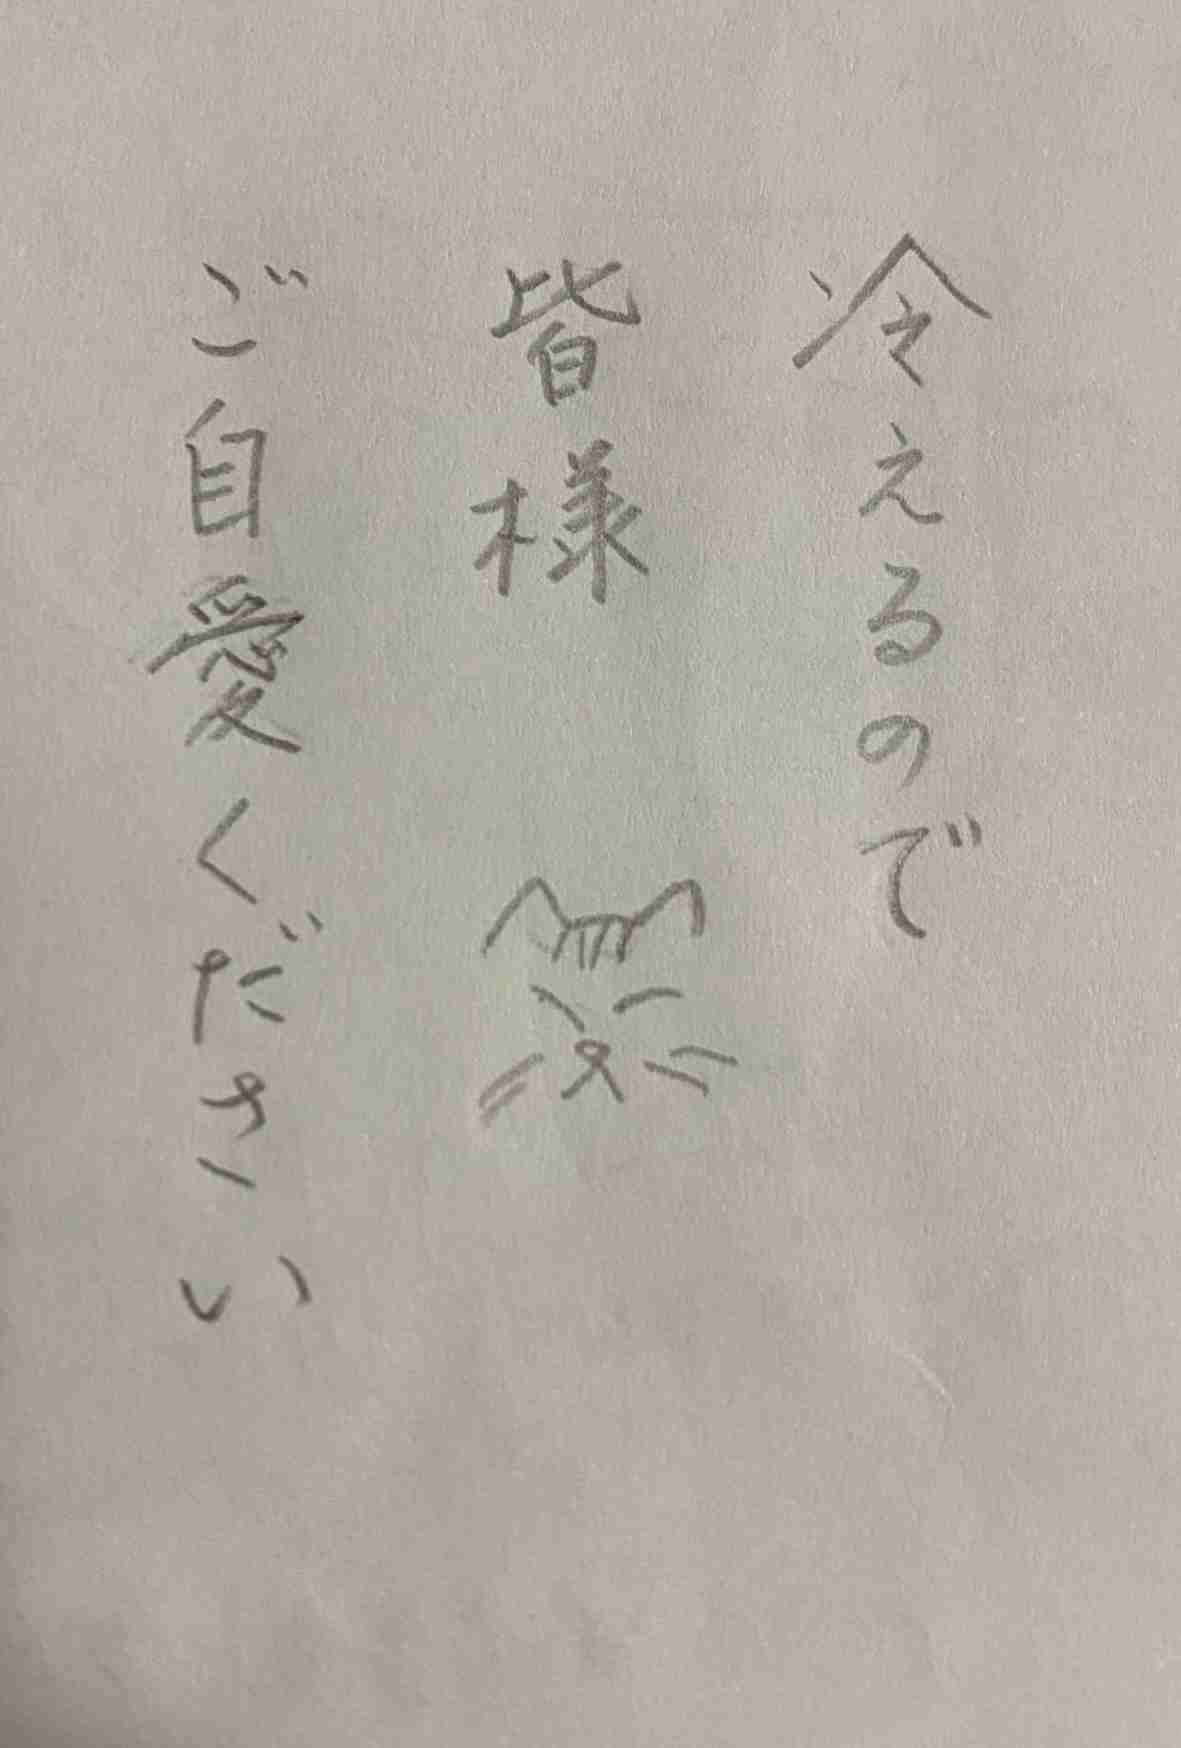 冷えるので
皆様
ご自愛ください